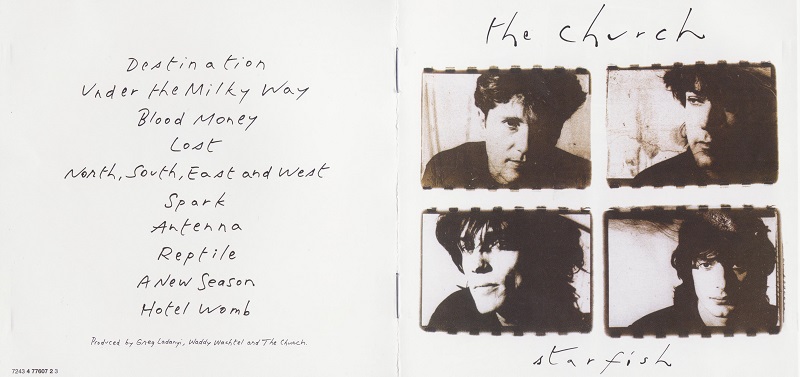 Destination
Under the Milky Way
Blood Money
Lost
North, South, East and West
Spark
Antenna
Reptile
A New Season
Hotel Womb
Produced by Greg Ladanyi, Waddy Wachtel and The Church.
7243 4 77607 2 3
the church
starfish